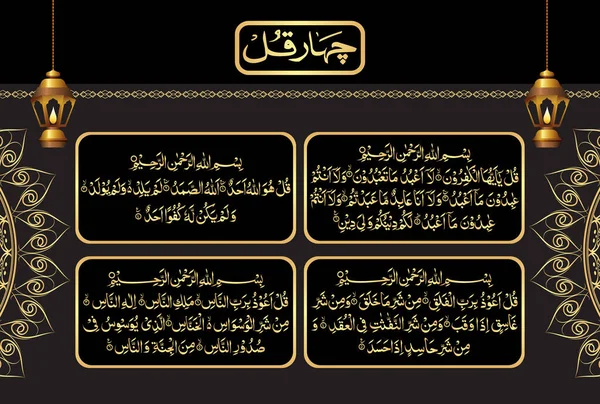 چہار قُل
بِسْمِ اللهِ الرَّحْمٰنِ الرَّحِيْمِ
قُلْ يٰٓاَيُّهَا الْكٰفِرُوْنَ ۙ لَآ اَعْبُدُ مَا تَعْبُدُوْنَ ۙ وَلَآ اَنْتُمْ
عٰبِدُوْنَ مَآ اَعْبُدُ ۚ وَلَآ اَنَا عَابِدٌ مَّا عَبَدْتُّمْ ۙ وَلَآ اَنْتُمْ
عٰبِدُوْنَ مَآ اَعْبُدُ ۗ لَكُمْ دِيْنُكُمْ وَلِيَ دِيْنِ ۚ
بِسْمِ اللهِ الرَّحْمٰنِ الرَّحِيْمِ
قُلْ هُوَ اللهُ اَحَدٌ ۚ اَللهُ الصَّمَدُ ۚ لَمْ يَلِدْ ۙ وَلَمْ يُوْلَدْ ۙ
وَلَمْ يَكُنْ لَّهٗ كُفُوًا اَحَدٌ ۚ
بِسْمِ اللهِ الرَّحْمٰنِ الرَّحِيْمِ
قُلْ اَعُوْذُ بِرَبِّ الْفَلَقِ ۙ مِنْ شَرِّ مَا خَلَقَ ۙ وَمِنْ شَرِّ
غَاسِقٍ اِذَا وَقَبَ ۙ وَمِنْ شَرِّ النَّفّٰثٰتِ فِي الْعُقَدِ ۙ وَ
مِنْ شَرِّ حَاسِدٍ اِذَا حَسَدَ ۚ
بِسْمِ اللهِ الرَّحْمٰنِ الرَّحِيْمِ
قُلْ اَعُوْذُ بِرَبِّ النَّاسِ ۙ مَلِكِ النَّاسِ ۙ اِلٰهِ النَّاسِ ۙ
مِنْ شَرِّ الْوَسْوَاسِ ۙ الْخَنَّاسِ ۙ الَّذِيْ يُوَسْوِسُ فِيْ
صُدُوْرِ النَّاسِ ۙ مِنَ الْجِنَّةِ وَالنَّاسِ ۚ